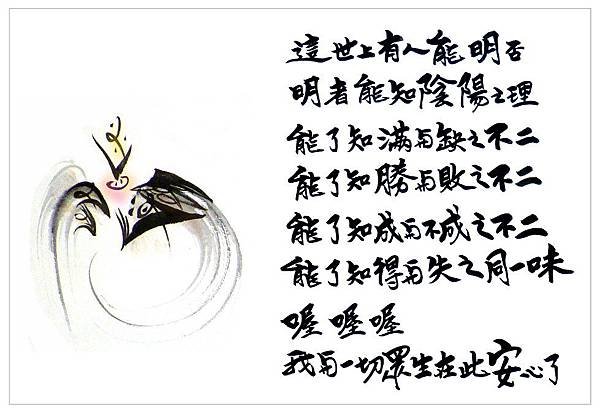 這世上有人能明否
明者能知陰陽之理
能了知滿与缺之不二
能了知勝与敗之不二
能了知成与不成之不二
能了知得与失之同一味
喔喔喔
我与一切眾生在此安心了